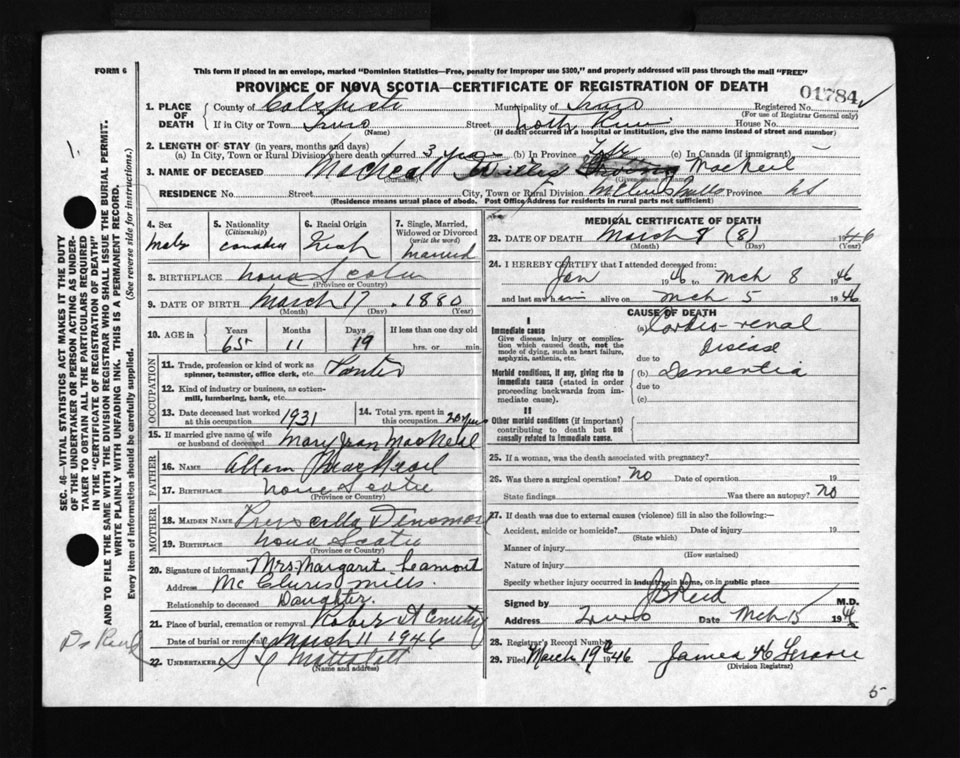 FORM 6
This form if placed in an envelope, marked "Dominion Statistics—Free, penalty for improper use $300," and properly addressed will pass through the mail "FREE"
PROVINCE OF NOVA SCOTIA—CERTIFICATE OF REGISTRATION OF DEATH
01784
1. PLACE OF DEATH
County of Colchester Municipality of Truro Registered No.
(For use of Registrar General only)
If in City or Town Truro Street North River House No.
(Name) (If death occurred in a hospital or institution, give the name instead of street and number)
2. LENGTH OF STAY (in years, months and days)
(a) In City, Town or Rural Division where death occurred 3 yrs (b) In Province Life (c) In Canada (if immigrant) –
3. NAME OF DECEASED MacNeil Willis MacNeil
(Surname) (Given name or names)
RESIDENCE No. Street City, Town or Rural Division McClures Mills Province NS
(Residence means usual place of abode. Post Office Address for residents in rural parts not sufficient)
4. Sex
male
5. Nationality (Citizenship)
6. Racial Origin
Irish
7. Single, Married, Widowed or Divorced (write the word)
married
8. BIRTHPLACE Nova Scotia
(Province or Country)
9. DATE OF BIRTH March 17, 1880
(Month) (Day) (Year)
10. AGE in Years Months Days If less than one day old
65 11 19 hrs. or min.
OCCUPATION
11. Trade, profession or kind of work as spinner, teamster, office clerk, etc.
12. Kind of industry or business, as cotton-mill, lumbering, bank, etc.
13. Date deceased last worked at this occupation 1931
14. Total yrs. spent in this occupation
15. If married give name of wife or husband of deceased Mary Jean MacNeil
FATHER
16. NAME
17. BIRTHPLACE Nova Scotia
(Province or Country)
MOTHER
18. MAIDEN NAME Priscilla Densmore
19. BIRTHPLACE Nova Scotia
(Province or Country)
20. Signature of informant Mrs. Margaret Leamont
Address McClures Mills.
Relationship to deceased Daughter.
21. Place of burial, cremation or removal Cemetery
Date of burial or removal March 11 1946
22. UNDERTAKER
(Name and address)
MEDICAL CERTIFICATE OF DEATH
23. DATE OF DEATH March 8 (8) 1946
(Month) (Day) (Year)
24. I HEREBY CERTIFY that I attended deceased from:
Jan 1946 to Mch 8 1946
and last saw him alive on Mch 5 1946
CAUSE OF DEATH
I
Immediate cause
Give disease, injury or complication which caused death, not the mode of dying, such as heart failure, asphyxia, asthenia, etc.
(a) Cardio-renal Disease
due to
Morbid conditions, if any, giving rise to immediate cause (stated in order proceeding backwards from immediate cause).
(b) Dementia
due to
(c)
II
Other morbid conditions (if important) contributing to death but not causally related to immediate cause.
25. If a woman, was the death associated with pregnancy?
26. Was there a surgical operation? no Date of operation 19
State findings Was there an autopsy? no
27. If death was due to external causes (violence) fill in also the following:—
Accident, suicide or homicide? Date of injury 19
(State which)
Manner of injury
(How sustained)
Nature of injury
Specify whether injury occurred in industry, in home, or in public place
Signed by M.D.
Address Truro Date Mch 15 1946
28. Registrar's Record Number
29. Filed March 19 1946 James
(Division Registrar)
5
SEC. 46—VITAL STATISTICS ACT MAKES IT THE DUTY OF THE UNDERTAKER OR PERSON ACTING AS UNDERTAKER TO OBTAIN ALL THE PARTICULARS REQUIRED IN THE "CERTIFICATE OF REGISTRATION OF DEATH" AND TO FILE THE SAME WITH THE DIVISION REGISTRAR WHO SHALL ISSUE THE BURIAL PERMIT.
WRITE PLAINLY WITH UNFADING INK. THIS IS A PERMANENT RECORD.
Every item of information should be carefully supplied. (See reverse side for instructions.)